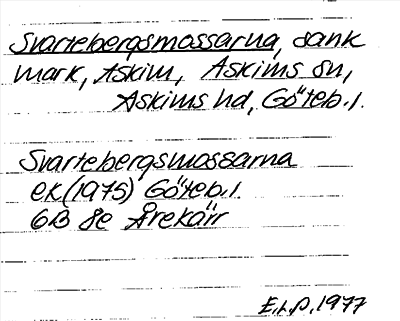 Svartebergsmossarna, sank
mark, Askim, Askims sn,
Askims hd, Göteb. l.
Svartebergsmossarna
ek (1975) Göteb. l.
6B 8e Årekärr
E.L.P. 1977